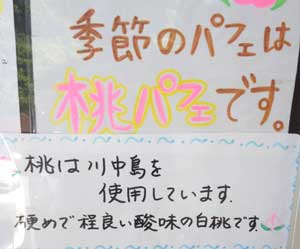 季節のパフェは
桃パフェです。
桃は川中島を
使用しています.
硬めで程良い酸味の白桃です